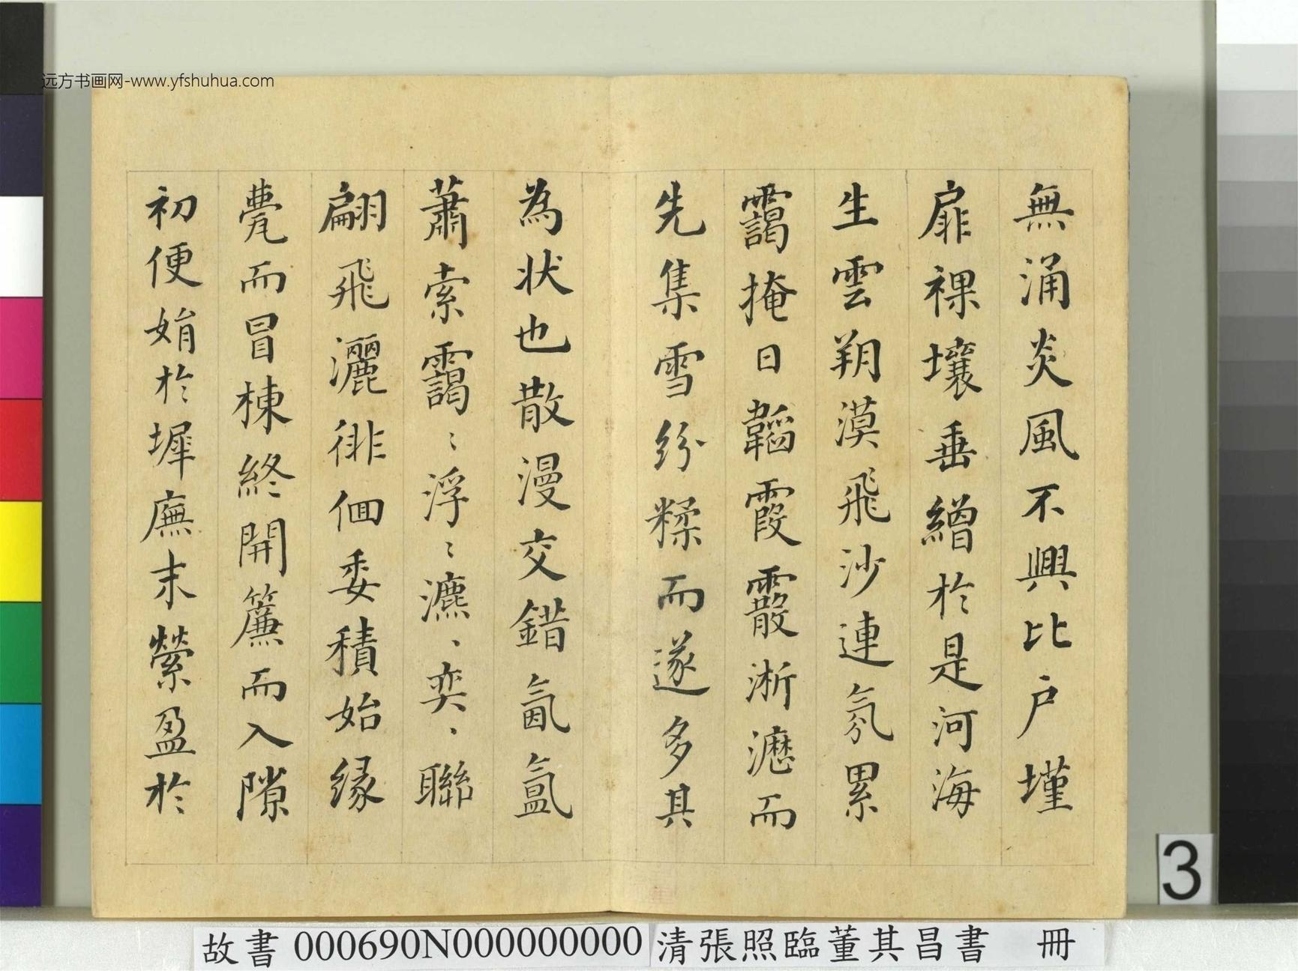 远方书画网-www.yfshuhua.com
無涌炎風不興比户墐
扉裸壤垂繒於是河海
生雲朔漠飛沙連氛累
靄掩日韜霞霰淅瀝而
先集雪紛糅而遂多其
為状也散漫交錯氤氳
蕭索靄〻浮〻瀌〻奕〻聯
翩飛灑徘徊委積始緣
甍而冒棟終開簾而入隙
初便娟於墀廡末縈盈於
3
故書 000690N000000000 清張照臨董其昌書 冊